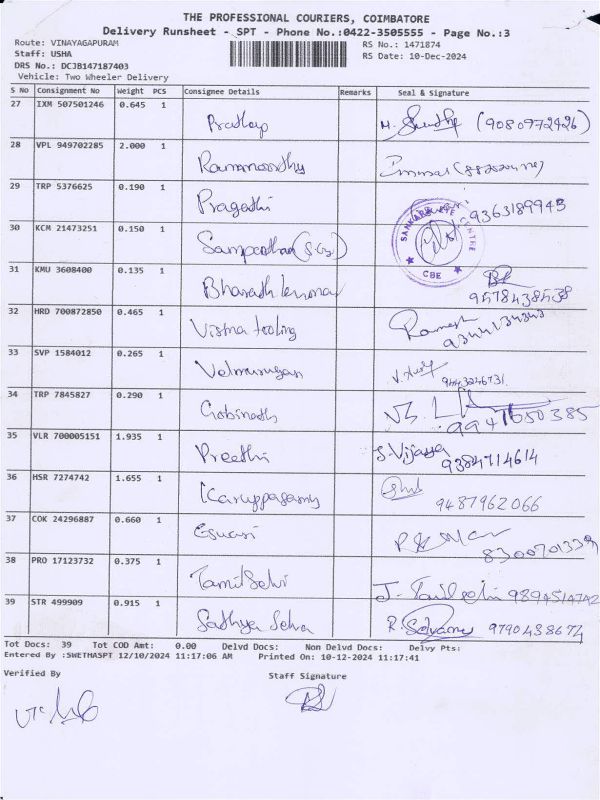 THE PROFESSIONAL COURIERS, COIMBATORE
Delivery Runsheet - SPT - Phone No.:0422-3505555 - Page No.:3
Route: VINAYAGAPURAM
RS No.: 1471874
Staff: USHA
RS Date: 10-Dec-2024
DRS No.: DCJB147187403
Vehicle: Two Wheeler Delivery
S No Consignment No Weight PCS Consignee Details Remarks Seal & Signature
27 IXM 507501246 0.645 1
Prathap (9080972426)
28 VPL 949702285 2.000 1
Rammoorthy
29 TRP 5376625 0.190 1
Pragathi 9363189943
30 KCM 21473251 0.150 1
SANKARA EYE CENTRE
CBE
31 KMU 3608400 0.135 1
Bharath
9578438538
32 HRD 700872850 0.465 1
Visma tooling Ramesh
33 SVP 1584012 0.265 1
Velmurugan
9443246731
34 TRP 7845827 0.290 1
Gobinath
35 VLR 700005151 1.935 1
Preethi S. Vijaya
9384714614
36 HSR 7274742 1.655 1
Karuppasamy
9487962066
37 COK 24296887 0.660 1
Eswari
8300701339
38 PRO 17123732 0.375 1
Tamil Selvi
39 STR 499909 0.915 1
Sathya Selva 9790438674
Tot Docs: 39 Tot COD Amt: 0.00 Delvd Docs: Non Delvd Docs: Delvy Pts:
Entered By :SWETHASPT 12/10/2024 11:17:06 AM Printed On: 10-12-2024 11:17:41
Verified By
Staff Signature